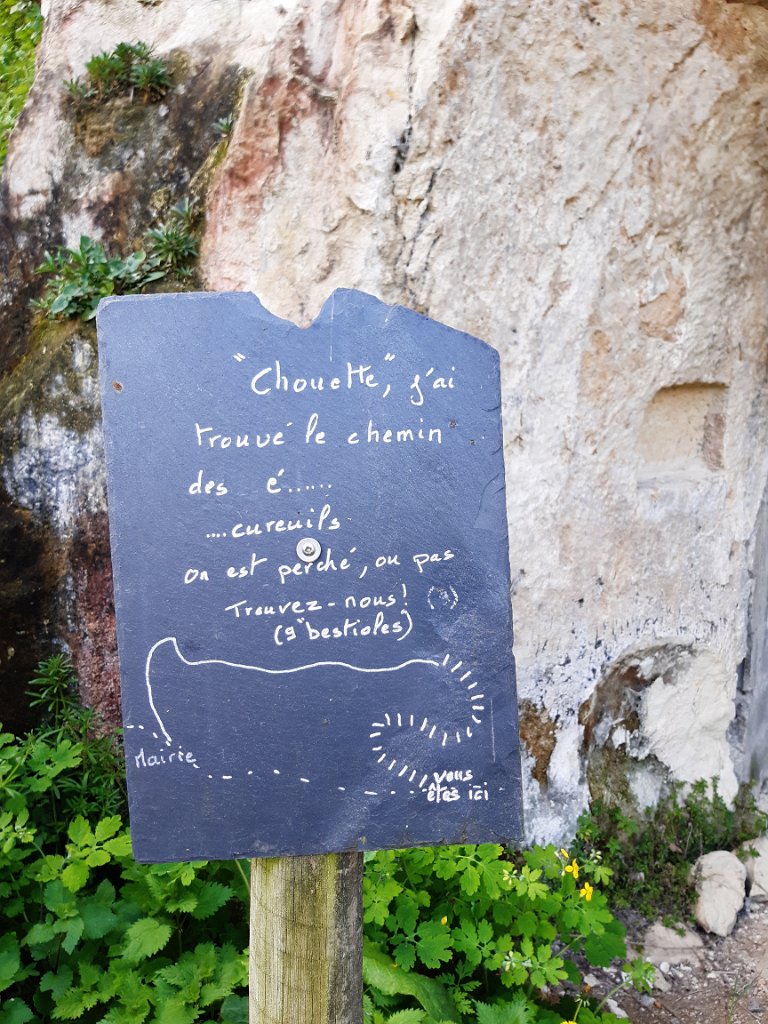 "Chouette", j'ai
trouvé le chemin
des é......
....cureuils
on est perché, ou pas
Trouvez-nous!
(9 "bestioles)
Mairie
vous
êtes ici